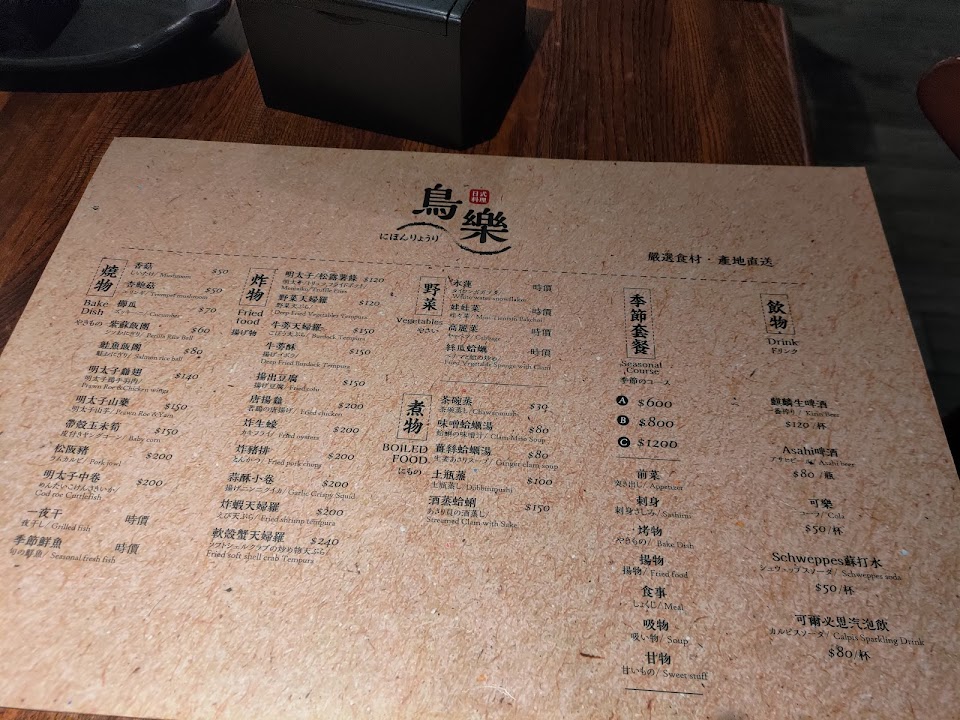 鳥樂
日式
料理
にほんりょうり
嚴選食材・產地直送
燒物
Bake
Dish
やきもの
香菇 $50
しいたけ/ Mushroom
杏鮑菇 $50
櫛瓜 $70
ズッキーニ/ Cucumber
紫蘇飯團 $60
鮭魚飯團 $80
鮭おにぎり/ Salmon rice ball
明太子雞翅 $140
Prawn Roe & Chicken wings
明太子山藥 $150
明太子山芋/ Prawn Roe & Yam
帶殼玉米筍 $150
皮付きヤングコーン/ Baby corn
松阪豬 $200
Pork jowl
明太子中卷 $200
Cod roe Cuttlefish
一夜干 時價
夜干し/ Grilled fish
季節鮮魚 時價
旬の鮮魚/ Seasonal fresh fish
炸物
Fried
food
揚げ物
明太子/松露薯條 $120
野菜天婦羅 $120
野菜天ぷら/
Deep Fried Vegetables Tempura
牛蒡天婦羅 $150
ごぼう天ぷら/ Burdock Tempura
牛蒡酥 $150
揚げゴボウ/
Deep Fried Burdock Tempura
揚出豆腐 $150
唐揚雞 $200
若鶏の唐揚げ/ Fried chicken
炸生蠔 $200
カキフライ/ Fried oysters
炸豬排 $200
とんかつ/ Fried pork chop
蒜酥小卷 $200
揚げニンニクイカ/ Garlic Crispy Squid
炸蝦天婦羅 $200
えび天ぷら/ Fried shrimp tempura
軟殼蟹天婦羅 $240
ソフトシェルクラブの炒め物天ぷら/
Fried soft shell crab Tempura
野菜
Vegetables
やさい
水蓮 時價
White water snowflake
娃娃菜 時價
高麗菜 時價
キャベツ/ Cabbage
絲瓜蛤蠣 時價
Fried Vegetable Sponge with Clam
煮物
BOILED
FOOD
にもの
茶碗蒸 $39
茶碗蒸し/ Chawanmushi
味噌蛤蠣湯 $80
蛤蜊の味噌汁/ Clam Miso Soup
薑絲蛤蠣湯 $80
生姜あさりスープ/ Ginger clam soup
土瓶蒸 $100
土瓶蒸し/ Dobbinmushi
酒蒸蛤蜊 $150
あさり貝の酒蒸し/
Streamed Clam with Sake
季節套餐
Seasonal
Course
季節のコース
A $600
B $800
C $1200
前菜
突き出し/ Appetizer
刺身
刺身さしみ/ Sashimi
烤物
やきもの/ Bake Dish
揚物
揚物/ Fried food
食事
しょくじ/ Meal
吸物
吸い物/ Soup
甘物
甘いもの/ Sweet stuff
飲物
Drink
ドリンク
麒麟生啤酒
一番搾り/ Kirin Beer
$120/杯
Asahi啤酒
アサヒビール/ Asahi beer
$80/瓶
可樂
コーラ/ Cola
$50/杯
Schweppes蘇打水
シュウェップスソーダ/ Schweppes soda
$50/杯
可爾必思汽泡飲
カルピスソーダ/ Calpis Sparkling Drink
$80/杯